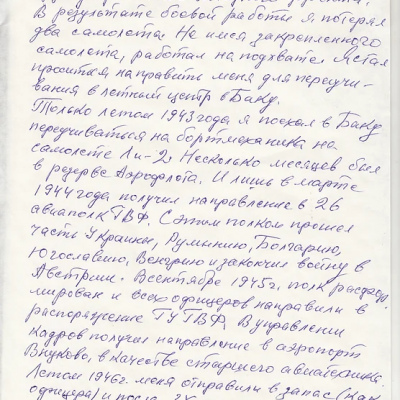 В результате боевой работы я потерял
два самолета. Не имея закрепленного
самолета, работал на подхвате. Я стал
проситься направить меня для переучи-
вания в летный центр в Баку.
Только летом 1943 года я поехал в Баку
переучиваться на бортмеханика на
самолете Ли-2. Несколько месяцев был
в резерве Аэрофлота. И лишь в марте
1944 года получил направление в 26
авиаполк ГВФ. С этим полком прошел
часть Украины, Румынию, Болгарию,
Югославию, Венгрию и закончил войну в
Австрии. В сентябре 1945г. полк расформи-
мирован и всех офицеров направили в
распоряжение ГУГВФ. В управлении
кадров получил направление в аэропорт
Внуково, в качестве старшего авиатехника.
Летом 1946г. меня отправили в запас (как
офицера) и после